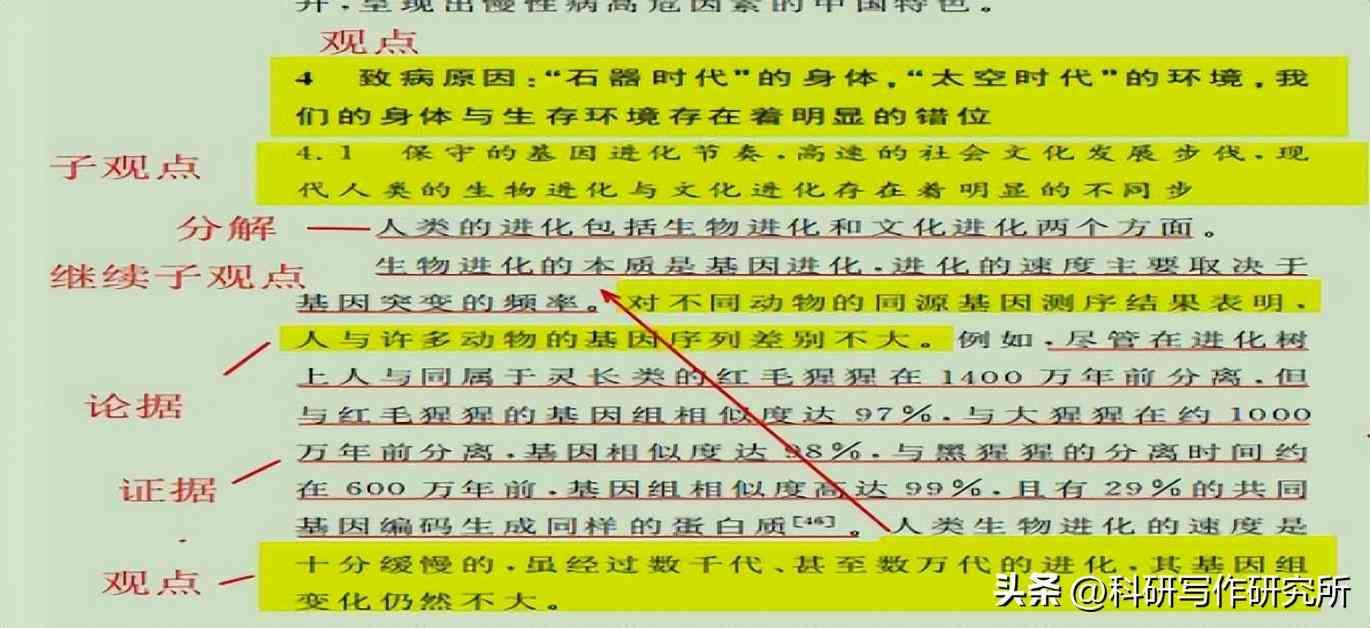 升，呈现出慢性病高危因素的中国特色。
观点
4 致病原因：“石器时代”的身体，“太空时代”的环境，我
们的身体与生存环境存在着明显的错位
子观点
4.1 保守的基因进化节奏，高速的社会文化发展步伐，现
代人类的生物进化与文化进化存在着明显的不同步
分解
人类的进化包括生物进化和文化进化两个方面。
继续子观点
生物进化的本质是基因进化，进化的速度主要取决于
基因突变的频率。对不同动物的同源基因测序结果表明，
人与许多动物的基因序列差别不大。例如，尽管在进化树
论据
上人与同属于灵长类的红毛猩猩在1400万年前分离，但
与红毛猩猩的基因组相似度达97%，与大猩猩在约1000
万年前分离，基因相似度达98%，与黑猩猩的分离时间约
证据
在600万年前，基因组相似度高达99%，且有29%的共同
基因编码生成同样的蛋白质[46]。人类生物进化的速度是
观点
十分缓慢的，虽经过数千代、甚至数万代的进化，其基因组
变化仍然不大。
头条 @科研写作研究所